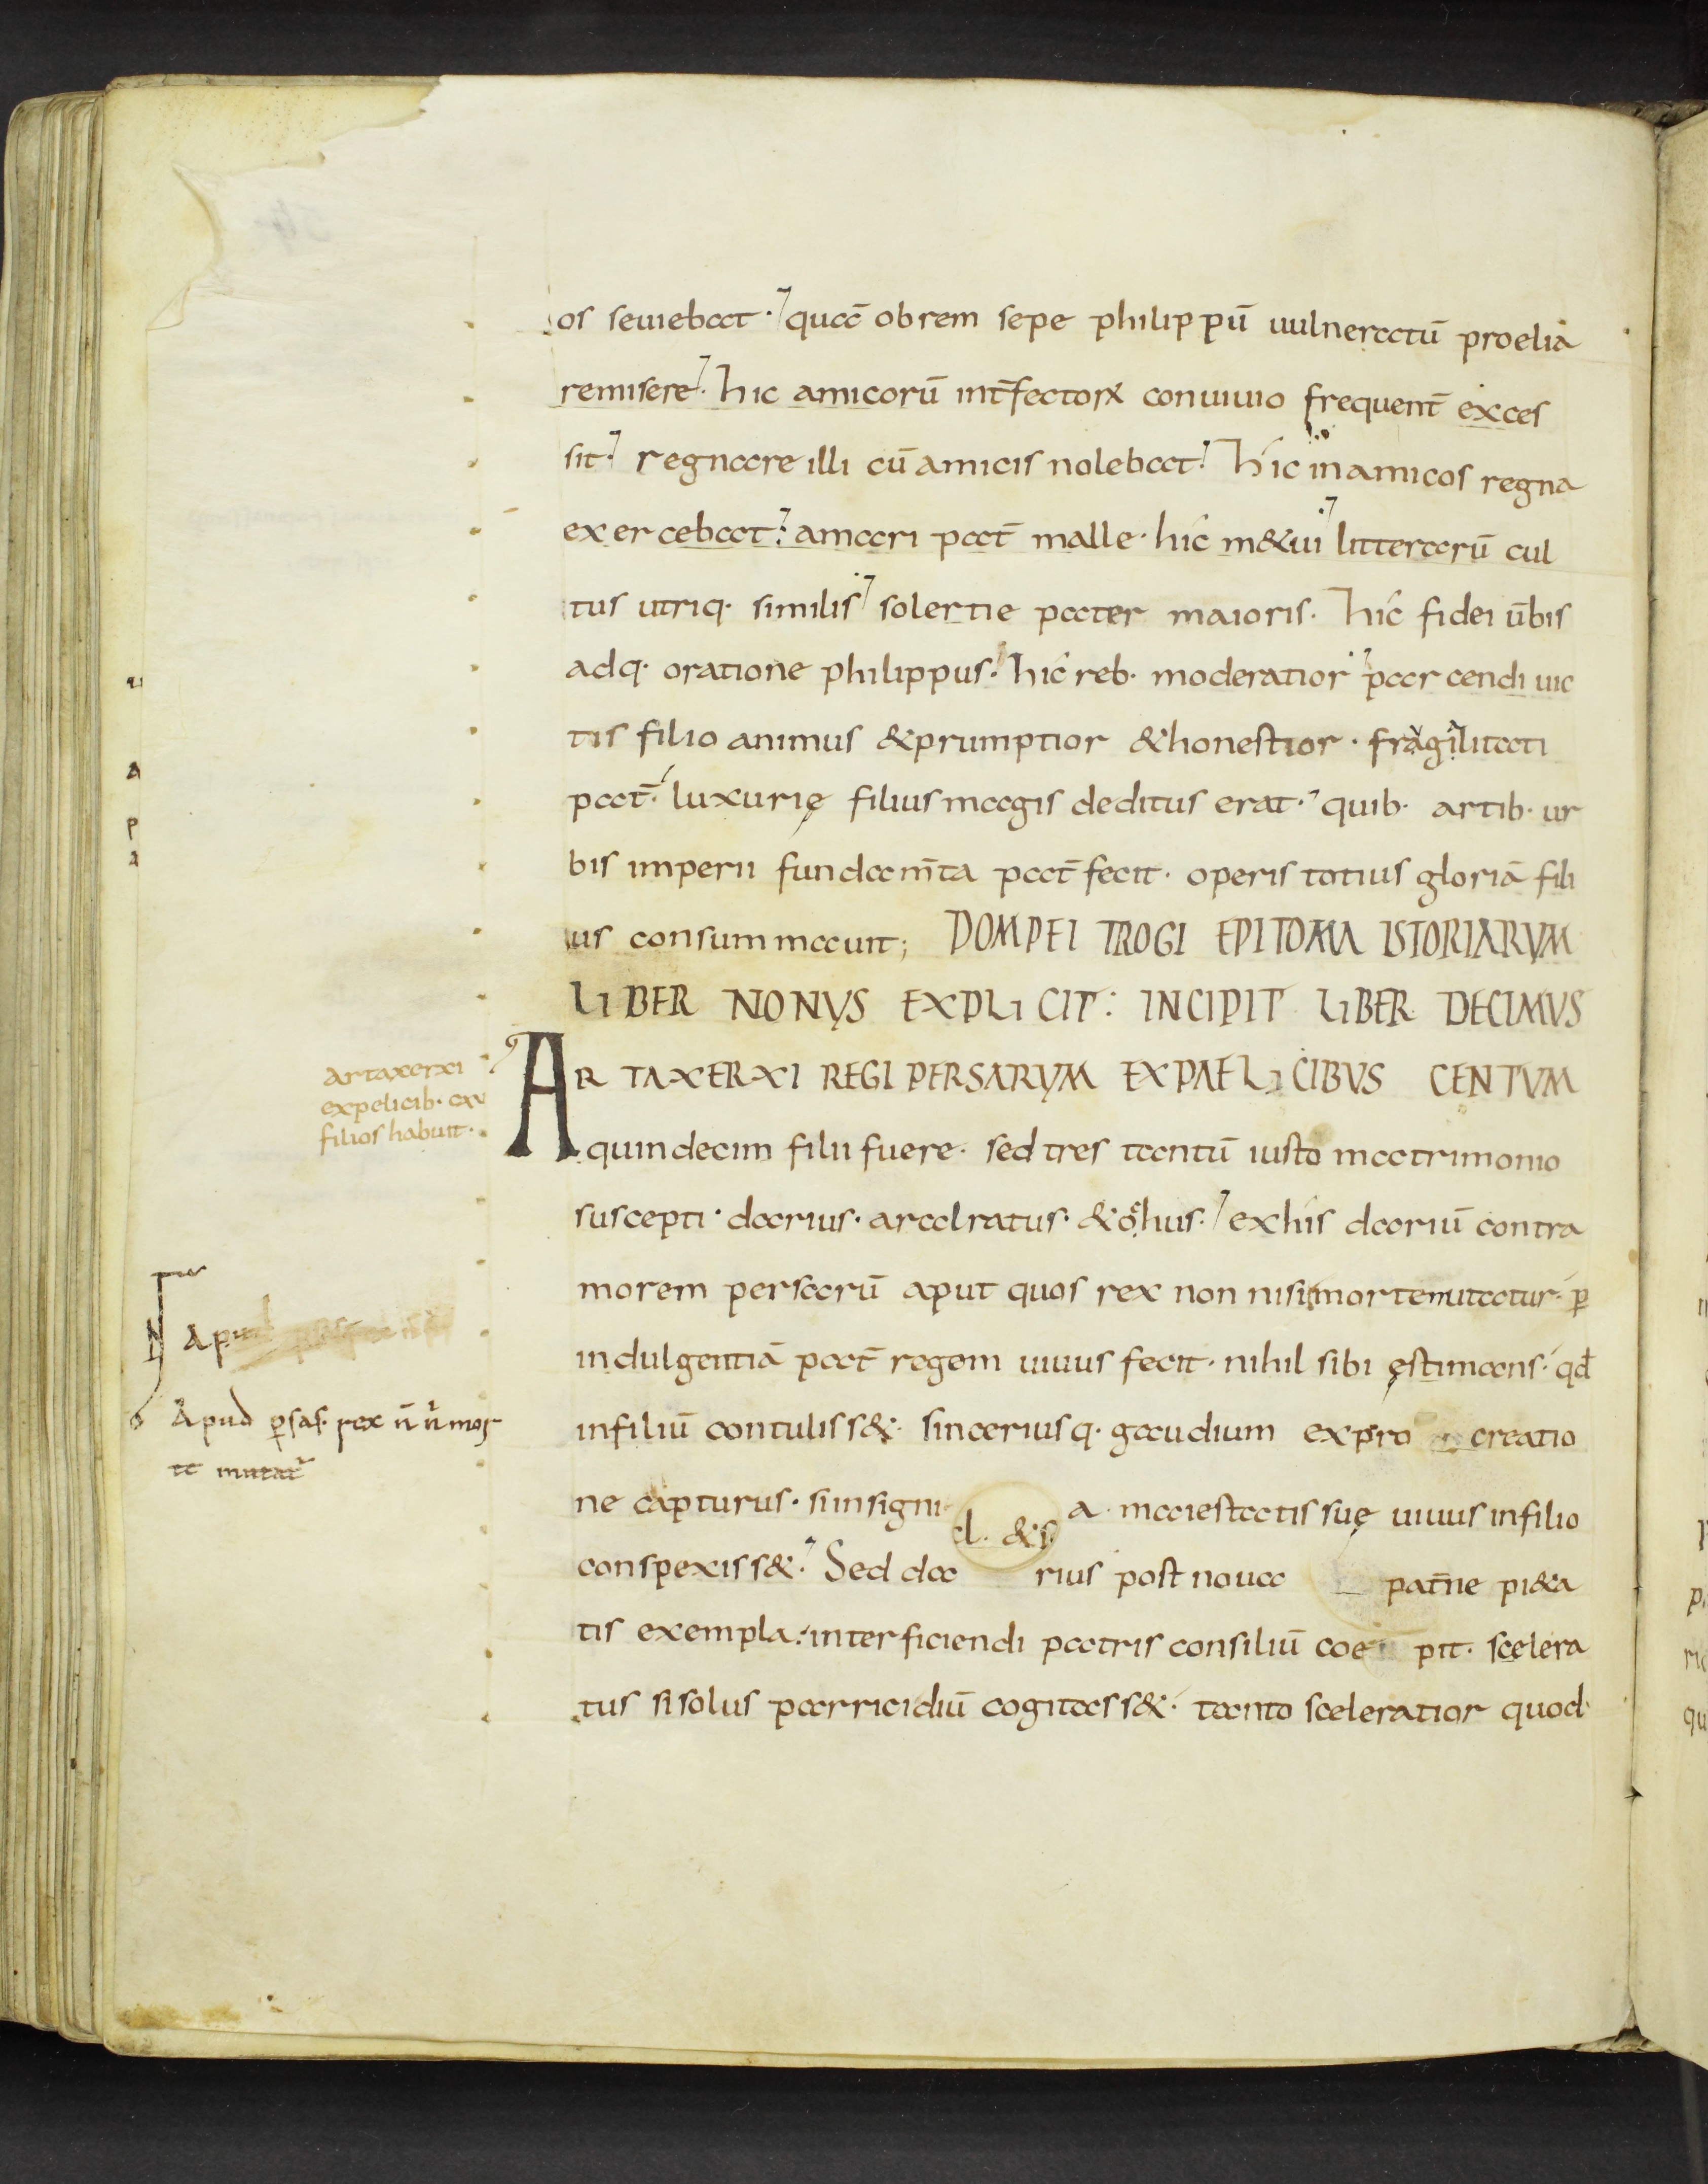 os seuiebat · quā obrem sepe philippū uulneratū proelia
remisere · hic amicorū int̄fectoꝝ conuiuio frequent̄ exces
sit · regnare illi cū amicis nolebat · hic in amicos regna
exercebat · amari pat̄ malle · hic m&ui litterarū cul
tus utriq· similis solertie pater maioris · hic fidei ūbis
adq· oratione philippus · hic reb· moderatior parcendi uic
tis filio animus &prumptior &honestior · fragilitati
pat̄ · luxurię filius magis deditus erat · quib· artib· ur
bis imperii fundam̄ta pat̄ fecit · operis totius gloriā fili
us consummauit ; POMPEI TROGI EPITOMA ISTORIARVM
LIBER NONVS EXPLICIT : INCIPIT LIBER DECIMVS
ARTAXERXI REGI PERSARVM EXPAELICIBVS CENTVM
quindecim filii fuere · sed tres tantū iusto matrimonio
suscepti · darius · aralratus · &ochus · exhis dariū contra
morem persarū aput quos rex non nisi morte mutatur · ꝑ
indulgentiā pat̄ regem uiuus fecit · nihil sibi ęstimans · qđ
infiliū contuliss& · sinceriusq· gaudium expro creatio
ne capturus · siinsigni a maiestatis suę uiuus infilio
d· &s·
conspexiss& · Sed da rius post noua pat̄ne pi&a
tis exempla · interficiendi patris consiliū coe pit · scelera
tus si solus parricidiū cogitass& · tanto sceleratior quod
artaxerxi
expelicib· cxv
filios habuit ·
Apud
Apud ꝑsas · rex n̄ n̓ mor
te mutat᷑
u
A
p
a